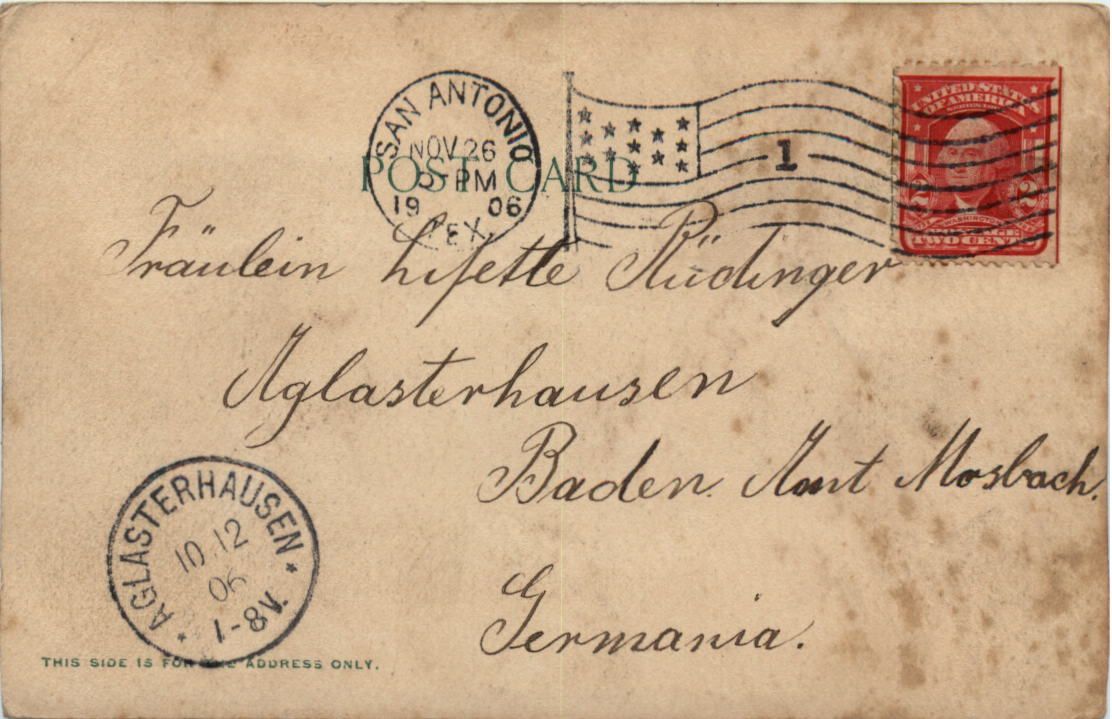 SAN ANTONIO
NOV 26
PM
19 06
TEX.
1
UNITED STATES
OF AMERICA
WASHINGTON
2 2
POSTAGE
TWO CENTS
POST CARD
Fräulein Lisette Rüdinger
Aglasterhausen
Baden. Amt Mosbach.
Germania.
AGLASTERHAUSEN
10 12
06
1-8V.
THIS SIDE IS FOR THE ADDRESS ONLY.